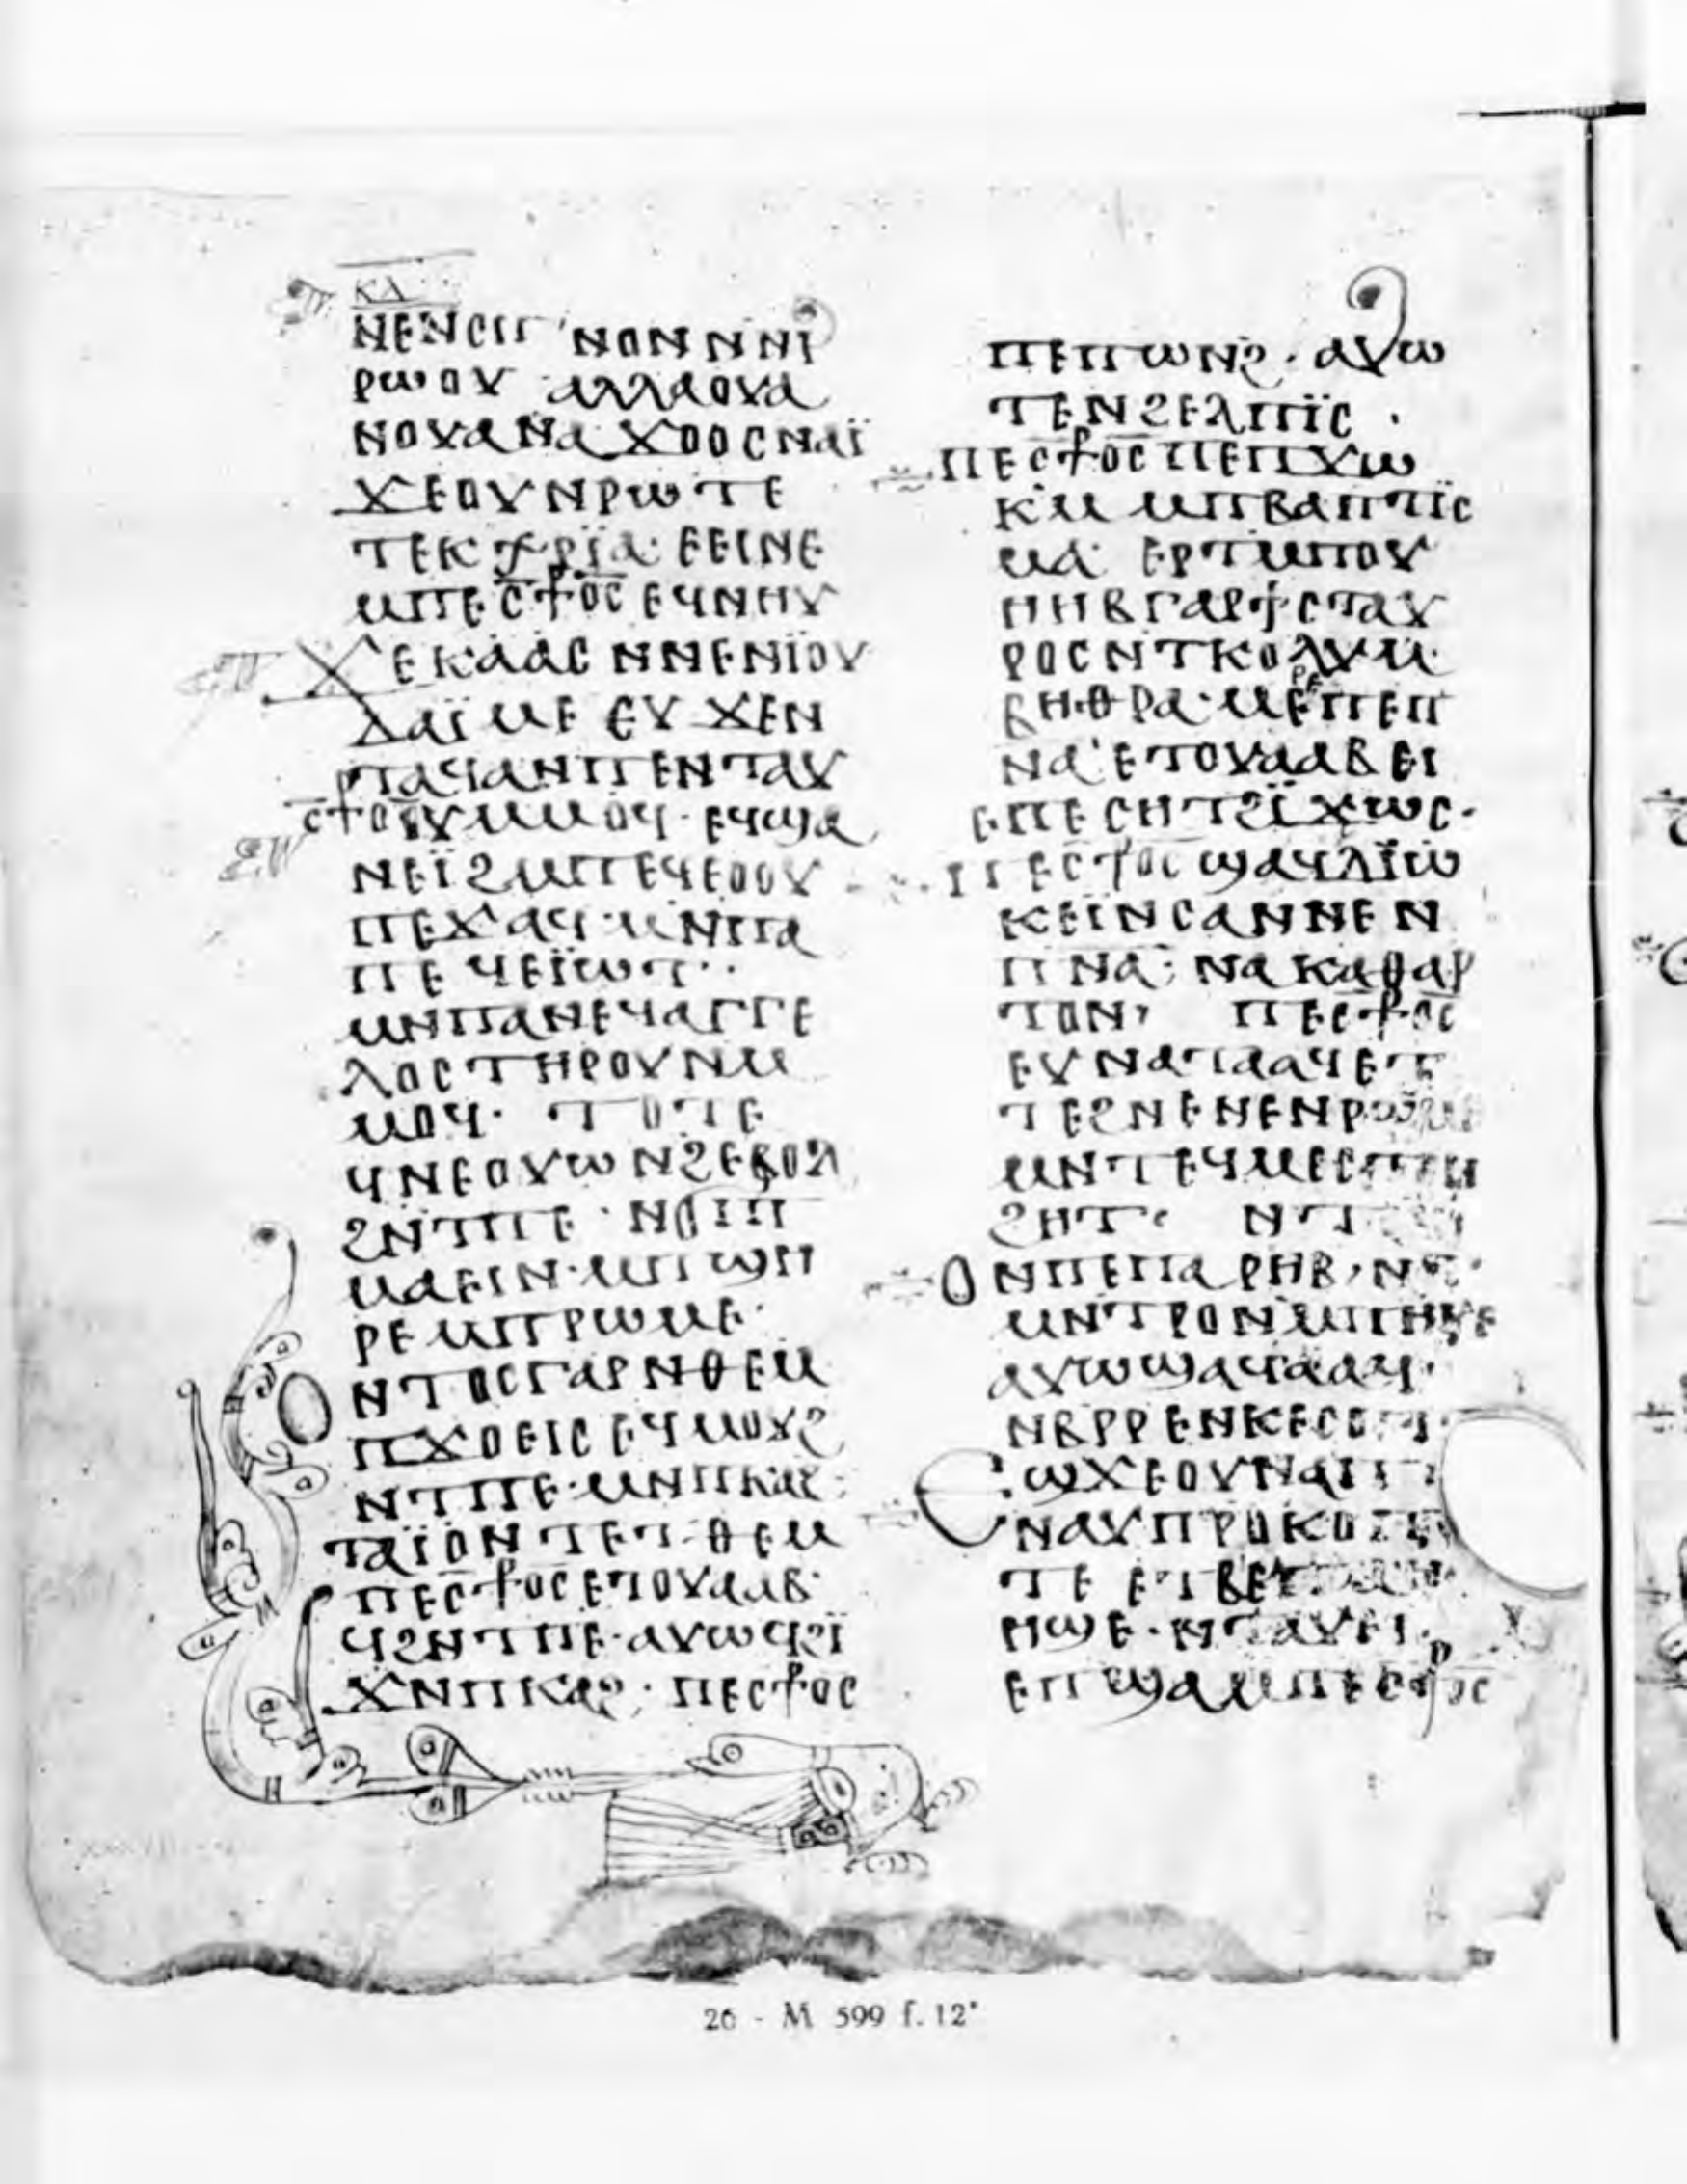 ⲕⲇ
ⲛⲉⲛⲥⲡ ⲛⲟⲛ ⲛⲛⲓ
ⲣⲱⲟⲩ ⲁⲗⲗⲁⲟⲩⲁ
ⲛⲟⲩⲁⲛⲁϫⲟⲟⲥⲛⲁⲓ̈
ϫⲉⲟⲩⲛⲣⲱⲧⲉ
ⲧⲉⲕ ⲉⲉⲓⲛⲉ
ⲙⲡⲉⲥ̅⳨ⲟ̅ⲥ̅ ⲉϥⲛⲏⲩ
ϫⲉⲕⲁⲁⲥ ⲛⲛⲉⲛⲓ̈ⲟⲩ
ⲇⲁⲓ̈ ⲙⲉ ⲉⲩϫⲉⲛ
ⲡⲧⲁϥⲁⲛⲡⲉⲛⲧⲁⲩ
ⲥ̅⳨ⲟ̅ⲩ̅ ⲙⲙⲟϥ· ⲉϥϣⲁ
ⲛⲉⲓ̈ϩⲙⲡⲉϥⲉⲟⲟⲩ
ⲡⲉϫⲁϥ·ⲙⲛⲡⲁ
ⲡⲉϥⲉⲓ̈ⲱⲧ··
ⲙⲛⲡⲁⲛⲉϥⲁⲅⲅⲉ
ⲗⲟⲥⲧⲏⲣⲟⲩⲛⲙ
ⲙⲟϥ· ⲧⲟⲧⲉ
ϥⲛⲉⲟⲩⲱⲛϩⲉⲃⲟⲗ
ϩⲛⲧⲡⲉ·ⲛϭⲓⲡ
ⲙⲁⲉⲓⲛ·ⲙⲡϣⲏ
ⲣⲉ ⲙⲡⲣⲱⲙⲉ·
ⲛⲧⲟⲥⲅⲁⲣⲛⲑⲉⲙ
ⲡϫⲟⲉⲓⲥ ⲉϥⲙⲟⲩϩ
ⲛⲧⲡⲉ·ⲙⲛⲡⲕⲁϩ:
ⲧⲁⲓ̈ⲟⲛ ⲧⲉⲧ·ⲑⲉⲙ
ⲡⲉⲥ̅⳨ⲟ̅ⲥ̅ⲉⲧⲟⲩⲁⲁⲃ·
ϥϩⲛⲧⲡⲉ·ⲁⲩⲱϥϩⲓ̈
ϫⲛⲡⲕⲁϩ· ⲡⲉⲥ⳨ⲟⲥ
ⲡⲉⲡⲱⲛϩ·ⲁⲩⲱ
ⲧⲉⲛϩⲉⲗⲡⲓ̈ⲥ·
ⲡⲉⲥ̅⳨ⲟ̅ⲥ̅ⲡⲉⲡϫⲱ
ⲕⲙ ⲙⲡⲃⲁⲡⲧⲓ̈ⲥ
ⲙⲁ· ⲉⲣⲧⲙⲡⲟⲩ
ⲏⲏⲃⲅⲁⲣϯⲥⲧⲁⲩ
ⲣⲟⲥⲛⲧⲕⲟⲗⲩⲙ
ⲃⲏⲑⲣⲁ·ⲙⲉⲣⲉⲡⲉⲡ
ⲛⲁ ⲉⲧⲟⲩⲁⲁⲃ ⲉⲓ
ⲉⲡⲉⲥⲏⲧϩⲓ̈ϫⲱⲥ·
ⲡⲉⲥ̅⳨ⲟⲥ ϣⲁϥⲇⲓ̈ⲱ
ⲕⲉⲓ̈ⲛⲥⲁⲛⲛⲉⲛ
ⲡⲛⲁ· ⲛⲁⲕⲁⲑⲁⲣ
ⲧⲟⲛ· ⲡⲉⲥ⳨ⲟⲥ
ⲉⲩⲛⲁⲧⲁⲁϥⲉⲧ
ⲙⲛⲧⲉϥⲙⲉⲥⲧⲛ
ϩⲏⲧ· ⲛⲧ
ⲟⲛⲡⲉⲡⲁⲣⲏⲃ·
ⲁⲩⲱϣⲁϥⲁⲁϥ·
ⲛⲃⲣⲣⲉⲛⲕⲉⲥⲟⲡ·
ⲉϣϫⲉⲟⲩⲛⲁⲡ
ⲛⲁⲩⲡⲣⲟⲕⲟⲡ
ⲧⲉ ⲉⲧⲃⲉ
ⲏϣⲉ·ⲛⲧⲁⲩⲉⲓ·
ⲉⲡϣⲁⲙⲡⲉⲥ⳨ⲟⲥ
26 - M 599 f. 12ᵛ